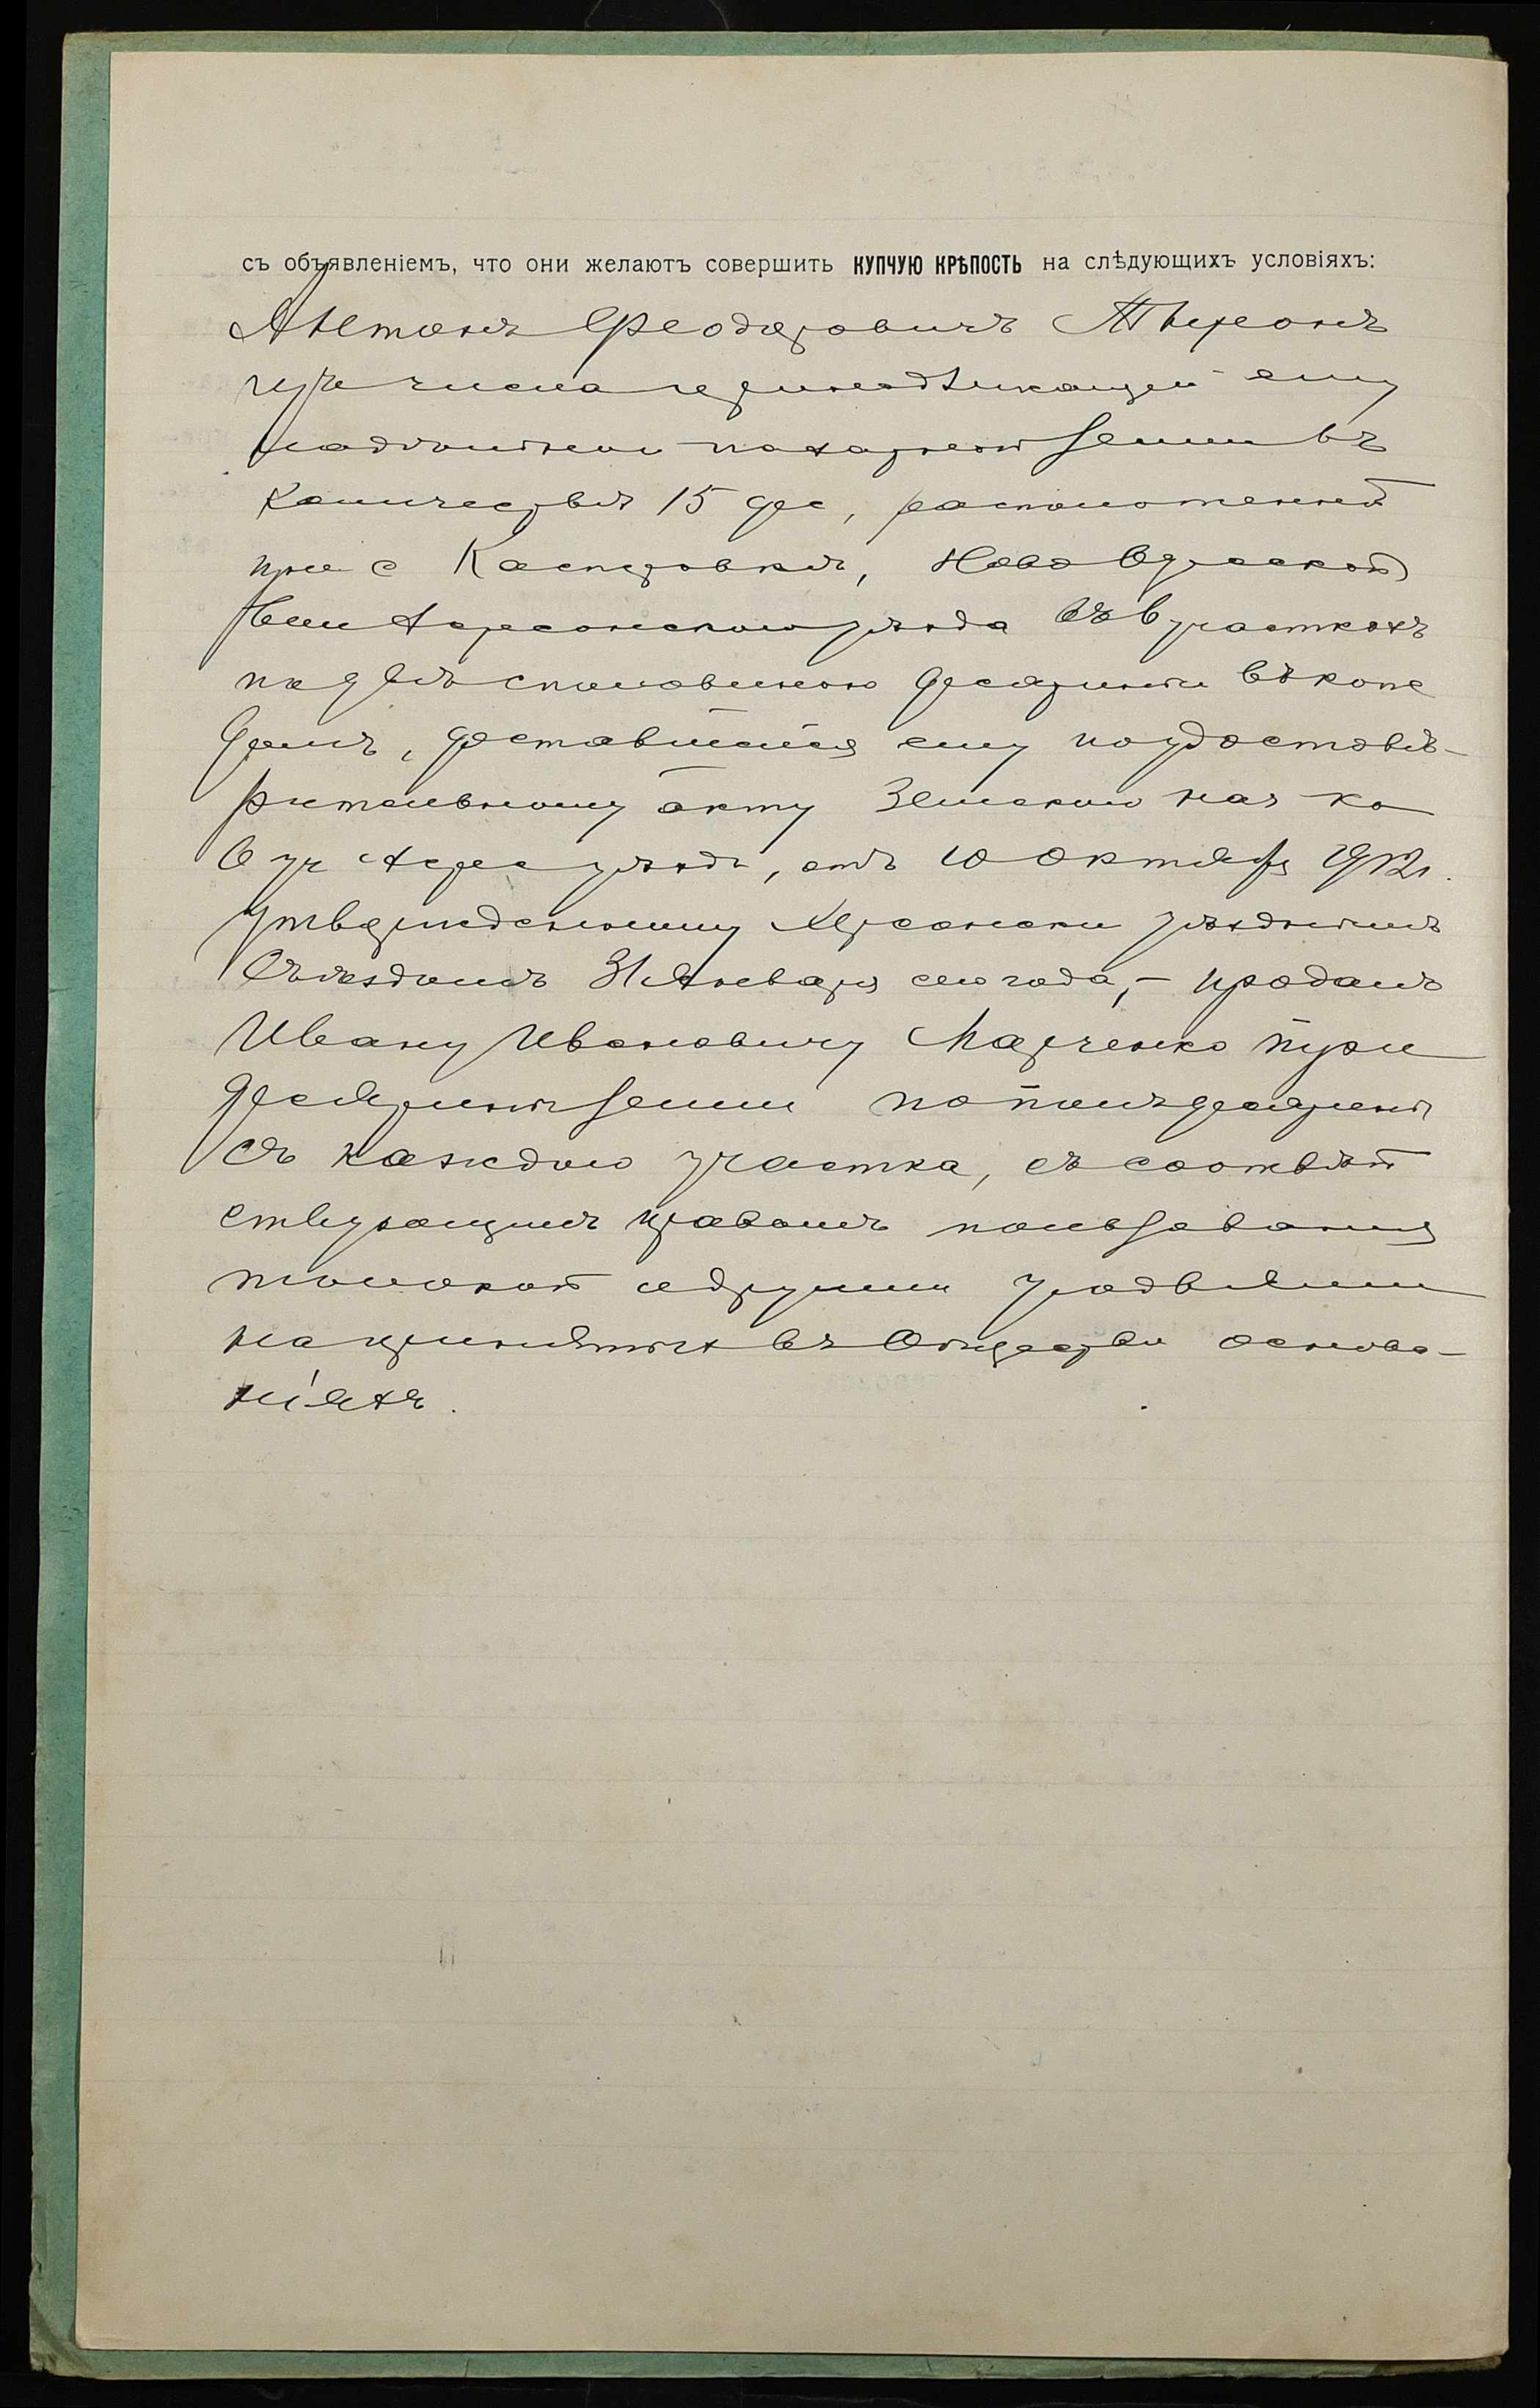 съ объявленіемъ, что они желаютъ совершить КУПЧУЮ КРѢПОСТЬ на слѣдующихъ условіяхъ:
Антонъ Феодоровичъ
изъ числа принадлежащей ему
надѣльной пахатной земли въ
количествѣ 15 дес, расположенной
при с Касперовкѣ, Ново Одесской
вол Херсонскаго уѣзда въ 6 участкахъ
по двѣ съ половиною десятины въ каж
домъ, доставшейся ему по удостовѣ-
рительному акту Земскаго нач ка
6 уч Херс уѣзда, отъ 10 Октября 1912 г.
утвержденному Херсонски уѣзднымъ
Съѣздомъ 31 Января сего года, - продалъ
Ивану Ивановичу Марченко три
десятины земли по полъ десятины
съ каждаго участка, съ соотвѣт
ствующимъ правомъ пользованія
толокой и другими угодьями
на принятыхъ въ Обществѣ основа-
ніяхъ.